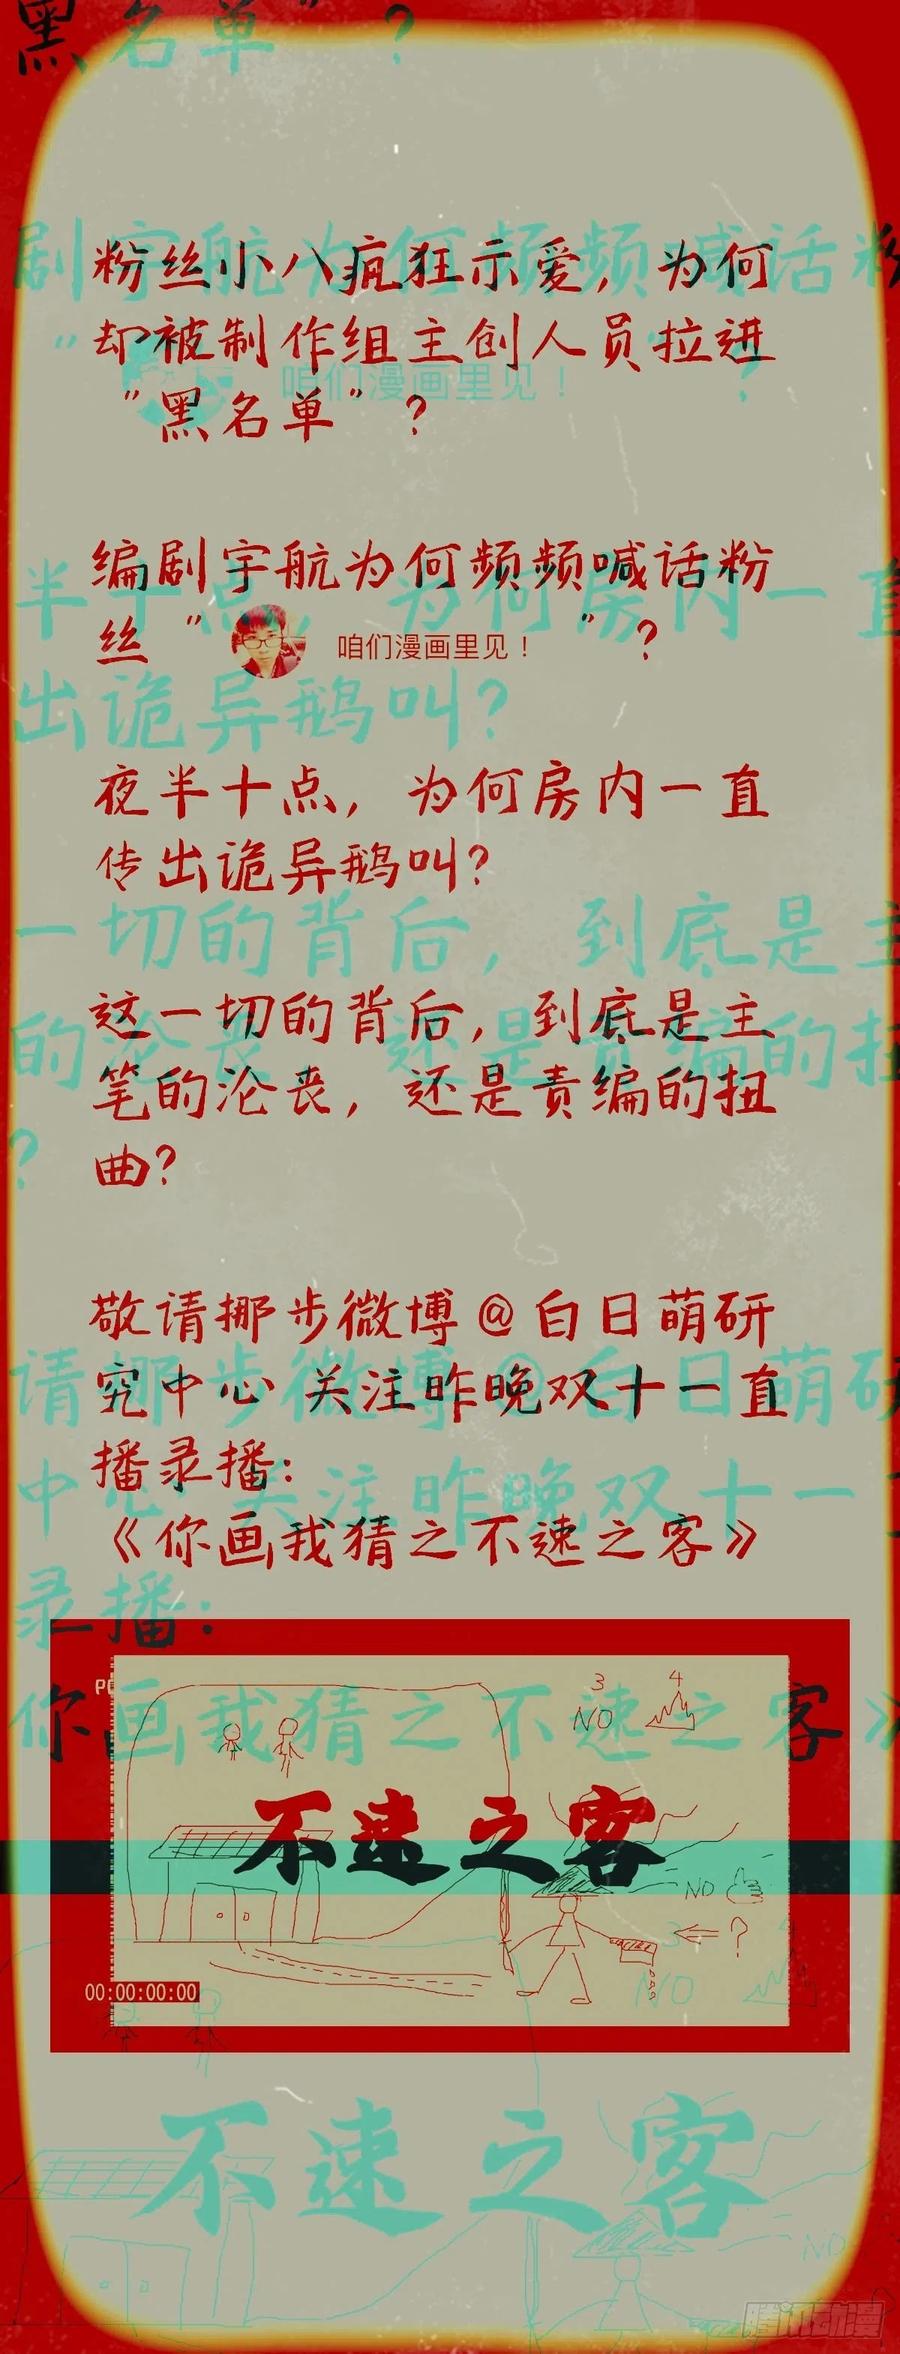 黑名单"?
粉丝小八疯狂示爱，为何
却被制作组主创人员拉进
"黑名单"?
编剧宇航为何频频喊话粉
丝" 咱们漫画里见！ "?
夜半十点，为何房内一直
传出诡异鹅叫?
这一切的背后，到底是主
笔的沦丧，还是责编的扭
曲?
敬请挪步微博@白日萌研
究中心 关注昨晚双十一直
播录播：
《你画我猜之不速之客》
3 4
NO
不速之客
NO
?
00:00:00:00
不速之客
腾讯动漫